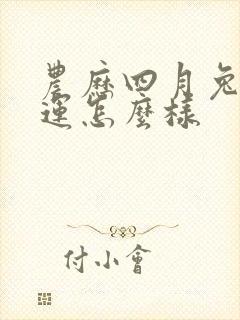 農歷四月兔
運怎麼樣
付小會